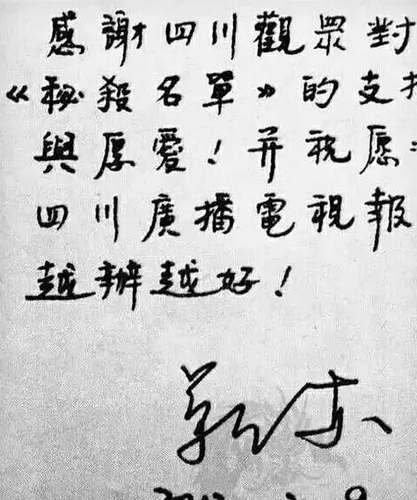 感謝四川觀眾對
《秘殺名單》的支持
與厚愛！并祝愿
四川廣播電視報
越辦越好！
靳东